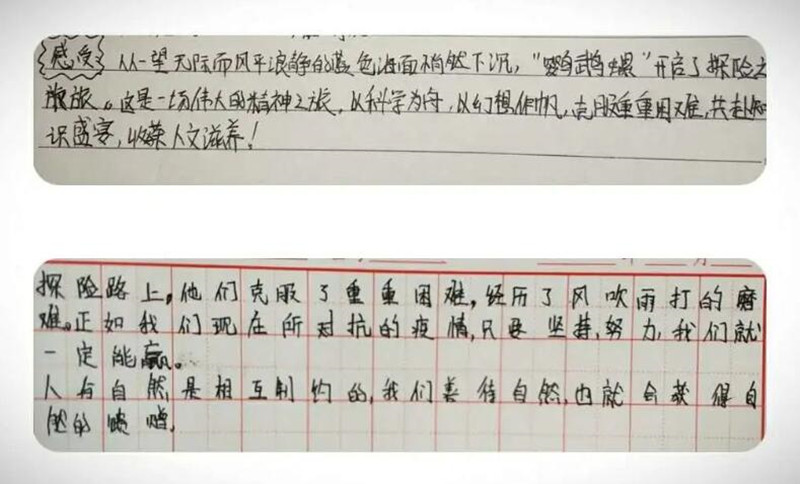 感受 从一望无际而风平浪静的蓝色海面悄然下沉，“鹦鹉螺”开启了探险之
旅。这是一场伟大的精神之旅，以科学为舟，以幻想作帆，克服重重困难，共赴知
识盛宴，收获人文滋养！
探险路上，他们克服了重重困难，经历了风吹雨打的磨
难。正如我们现在所对抗的疫情，只要坚持，努力，我们就
一定能赢。
人与自然，是相互制约的，我们善待自然，也就会获得自
然的馈赠。